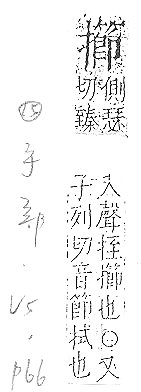 擳
側瑟
切臻
入聲挃擳也⊙又
子列切音節拭也
⑮手部.V5.p66